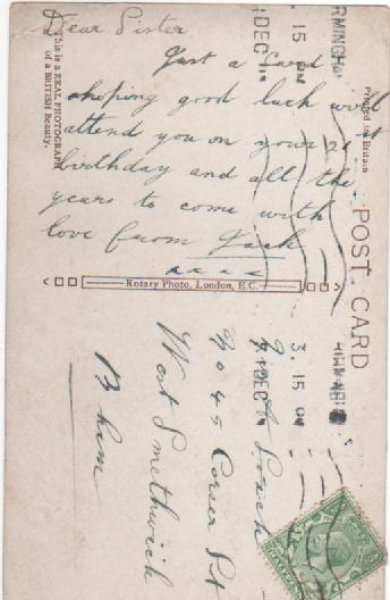 Dear Sister
Just a Card
hoping good luck will
attend you on your 21
birthday and all the
years to come with
love from Jack
x x x x
This is a REAL PHOTOGRAPH
of a BRITISH Beauty.
Printed in Britain
POST CARD
Rotary Photo, London, E.C.
No 45 Corser St
West Smethwick
B'hem
3. 15 PM
DEC 11
15 PM
DEC 11